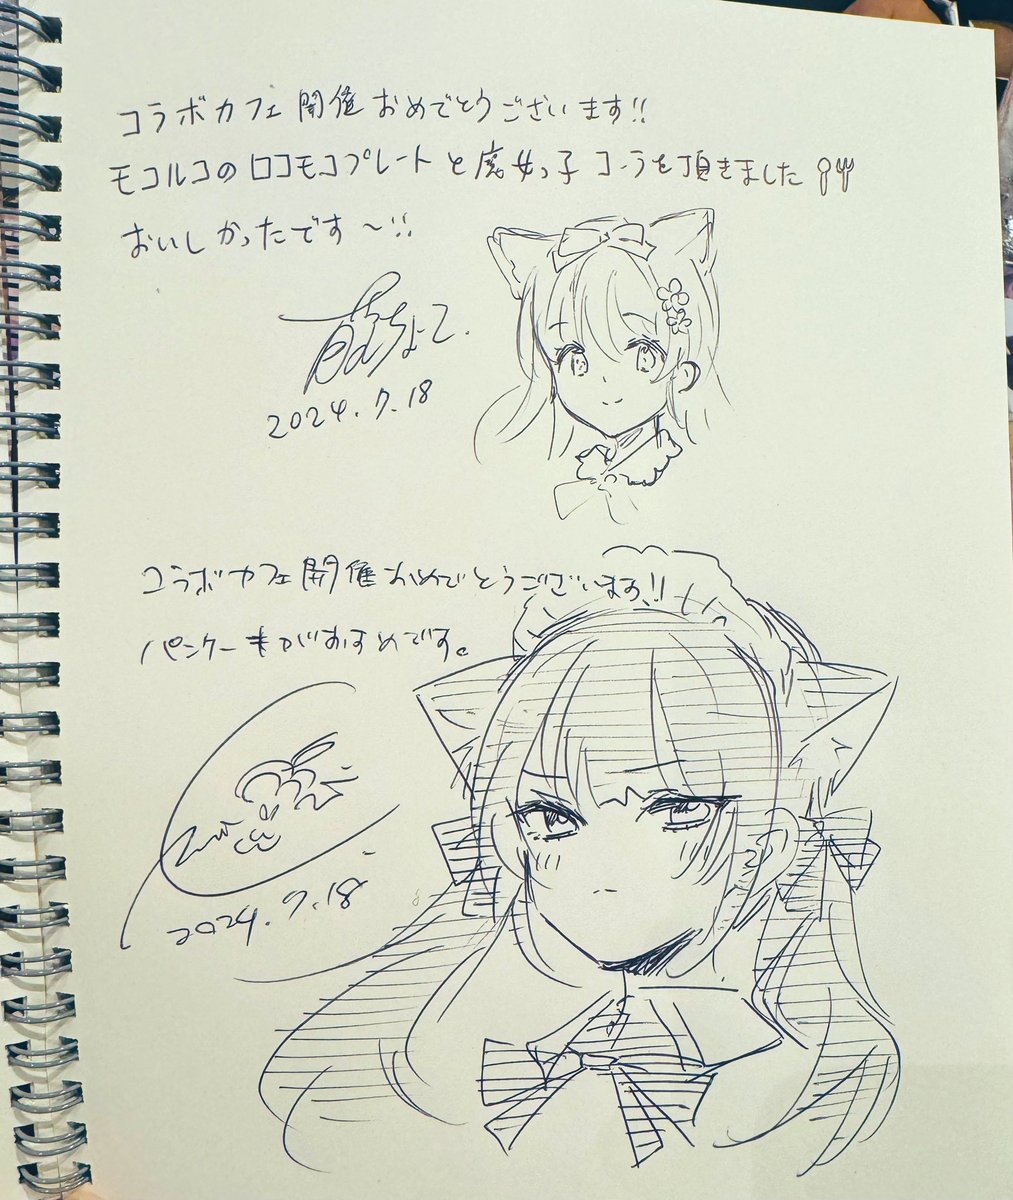 コラボカフェ開催おめでとうございます!!
モコルコのロコモコプレートと魔女っ子コーラを頂きました
おいしかったです〜!!
ちょこ
2024.7.18
コラボカフェ開催おめでとうございます!!
パンケーキがおすすめです。
2024.7.18